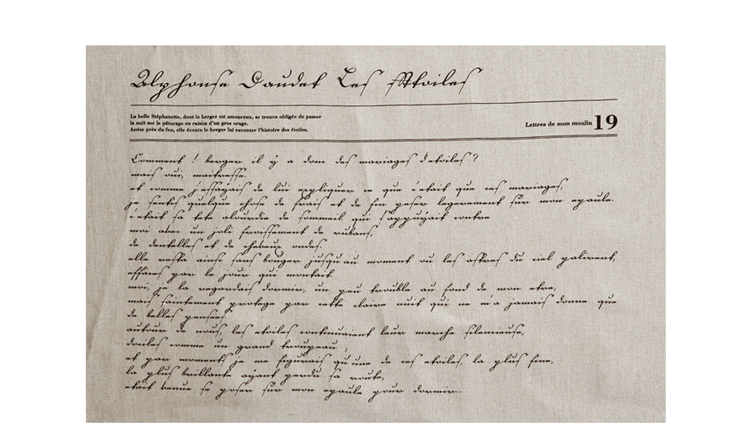 Alphonse Daudet Les Etoiles
La belle Stéphanette, dont le berger est amoureux, se trouve obligée de passer
la nuit sur le pâturage en raison d'un gros orage.
Assise près du feu, elle écoute le berger lui raconter l'histoire des étoiles.
Lettres de mon moulin 19
Comment ! berger il y a donc des mariages d'etoiles ?
mais oui, maitresse.
et comme j'essayais de lui expliquer ce que c'etait que ces mariages,
je sentis quelque chose de frais et de fin peser legerement sur mon epaule.
c'etait sa tete alourdie de sommeil qui s'appuyait contre
moi avec un joli froissement de rubans,
de dentelles et de cheveux ondes.
elle resta ainsi sans bouger jusqu'au moment ou les astres du ciel palirent,
effaces par le jour qui montait.
moi, je la regardais dormir, un peu trouble au fond de mon etre,
mais saintement protege par cette claire nuit qui ne m'a jamais donne que
de belles pensees.
autour de nous, les etoiles continuaient leur marche silencieuse,
dociles comme un grand troupeau ;
et par moments je me figurais qu'une de ces etoiles, la plus fine,
la plus brillante ayant perdu sa route,
etait venue se poser sur mon epaule pour dormir...